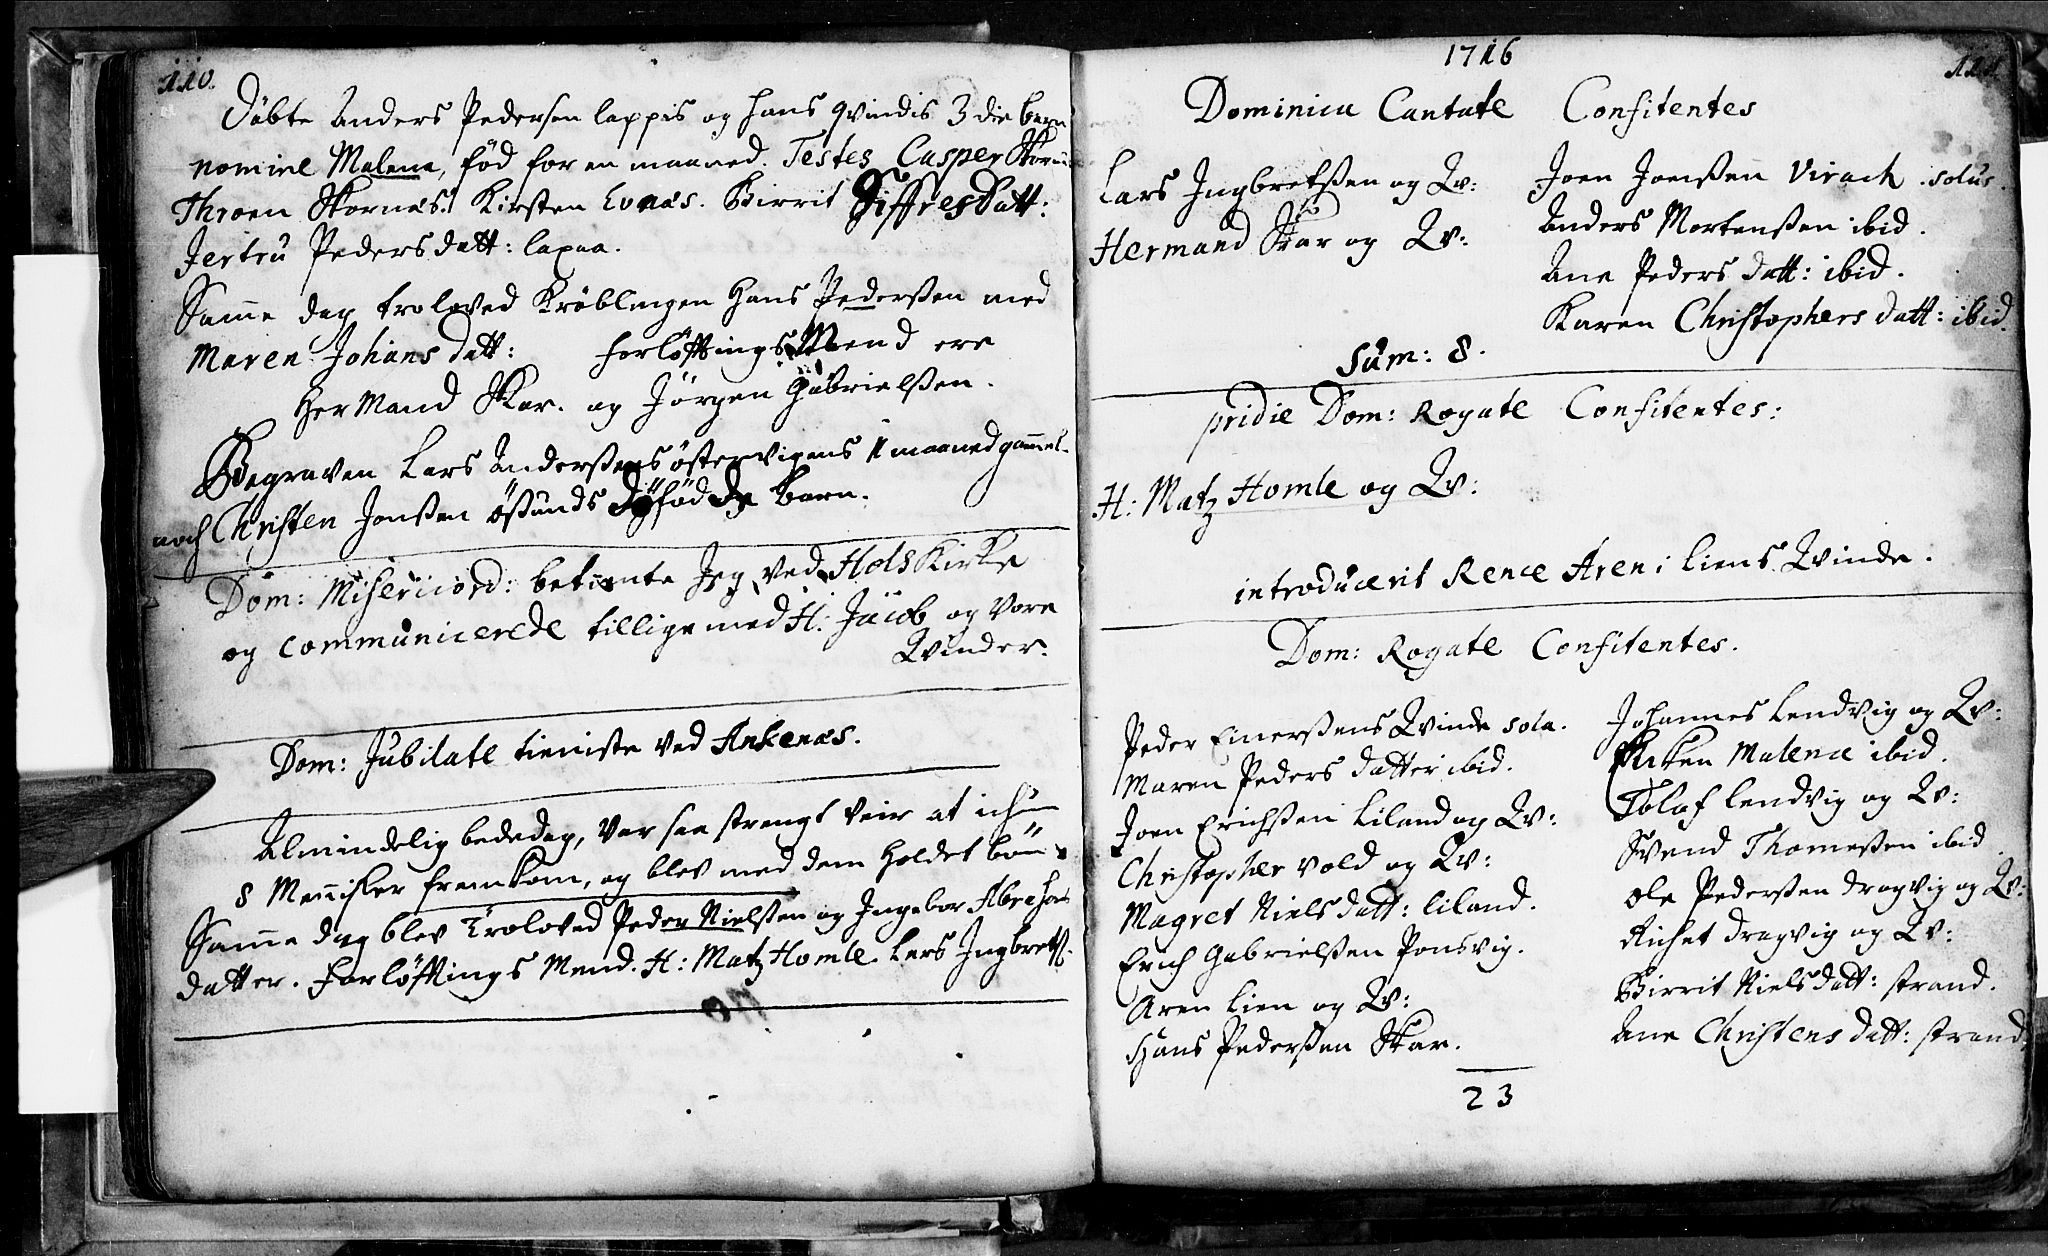 110.
Döbte Anders Pedersen lappis og hans qvindis 3die barn
nomine Malena, fød for en maaned. Testes Casper Skorn:
Throen Skornæs. Kirsten Evnæs. Birrit SiffresDatt:
Jertru Pedersdatt: lapaa.
Samme dag troloved Krøblingen Hans Pederßen med
Maren Johans datt: forløfftings Mend ere
HerMand Skar. og Jörgen Gabrielßen.
Begraven Lars Anderßens østervigens 1 maaned gammel
noch Christen Jonßen ößunds döfödde barn.
Dom: Misericord: betiente Jeg ved Hols Kirke
og communicerede tillige med H: Jacob og vore
Qvinder.
Dom: Jubilate tieniste ved Ankenæs.
Almindelig bededag, var saa strengt veir at ichun
8 Menisker fremkom, og blev med dem holdet bön
Samme dag blev Troloved Peder Nielßen og Ingebor Abraham
datter. Forløfftings Mend. H: Matz Homle. Lars Ingbretß.
1716
111.
Dominica Cantate Confitentes
Lars Ingbretßen og Qv:
Hermand Skar og Qv:
Joen Joenßen Virack. solus.
Anders Mortenßen ibid.
Ane Peders datt: ibid.
Karen Christophers datt: ibid.
Sum: 8.
pridie Dom: Rogate Confitentes:
H: Matz Homle og Qv:
introducerit Rence Aren i liens Qvinde.
Dom: Rogate Confitentes.
Peder Einerßens Qvinde sola.
Maren Peders datter ibid.
Joen Erichßen Liland og Qv:
Christopher vold og Qv:
Magret Niels datt: liland.
Erich Gabrielßen Ponsvig.
Aren Lien og Qv:
Hans Pederßen Skar.
Johannes Lendvig og Qv:
Malena ibid.
Tolaf lendvig og Qv:
Svend Thomeßen ibid.
Ole Pederßen dragvig og Qv:
Richet dragvig og Qv:
Birrit Niels datt: strand.
Ane Christens datt: strand.
23